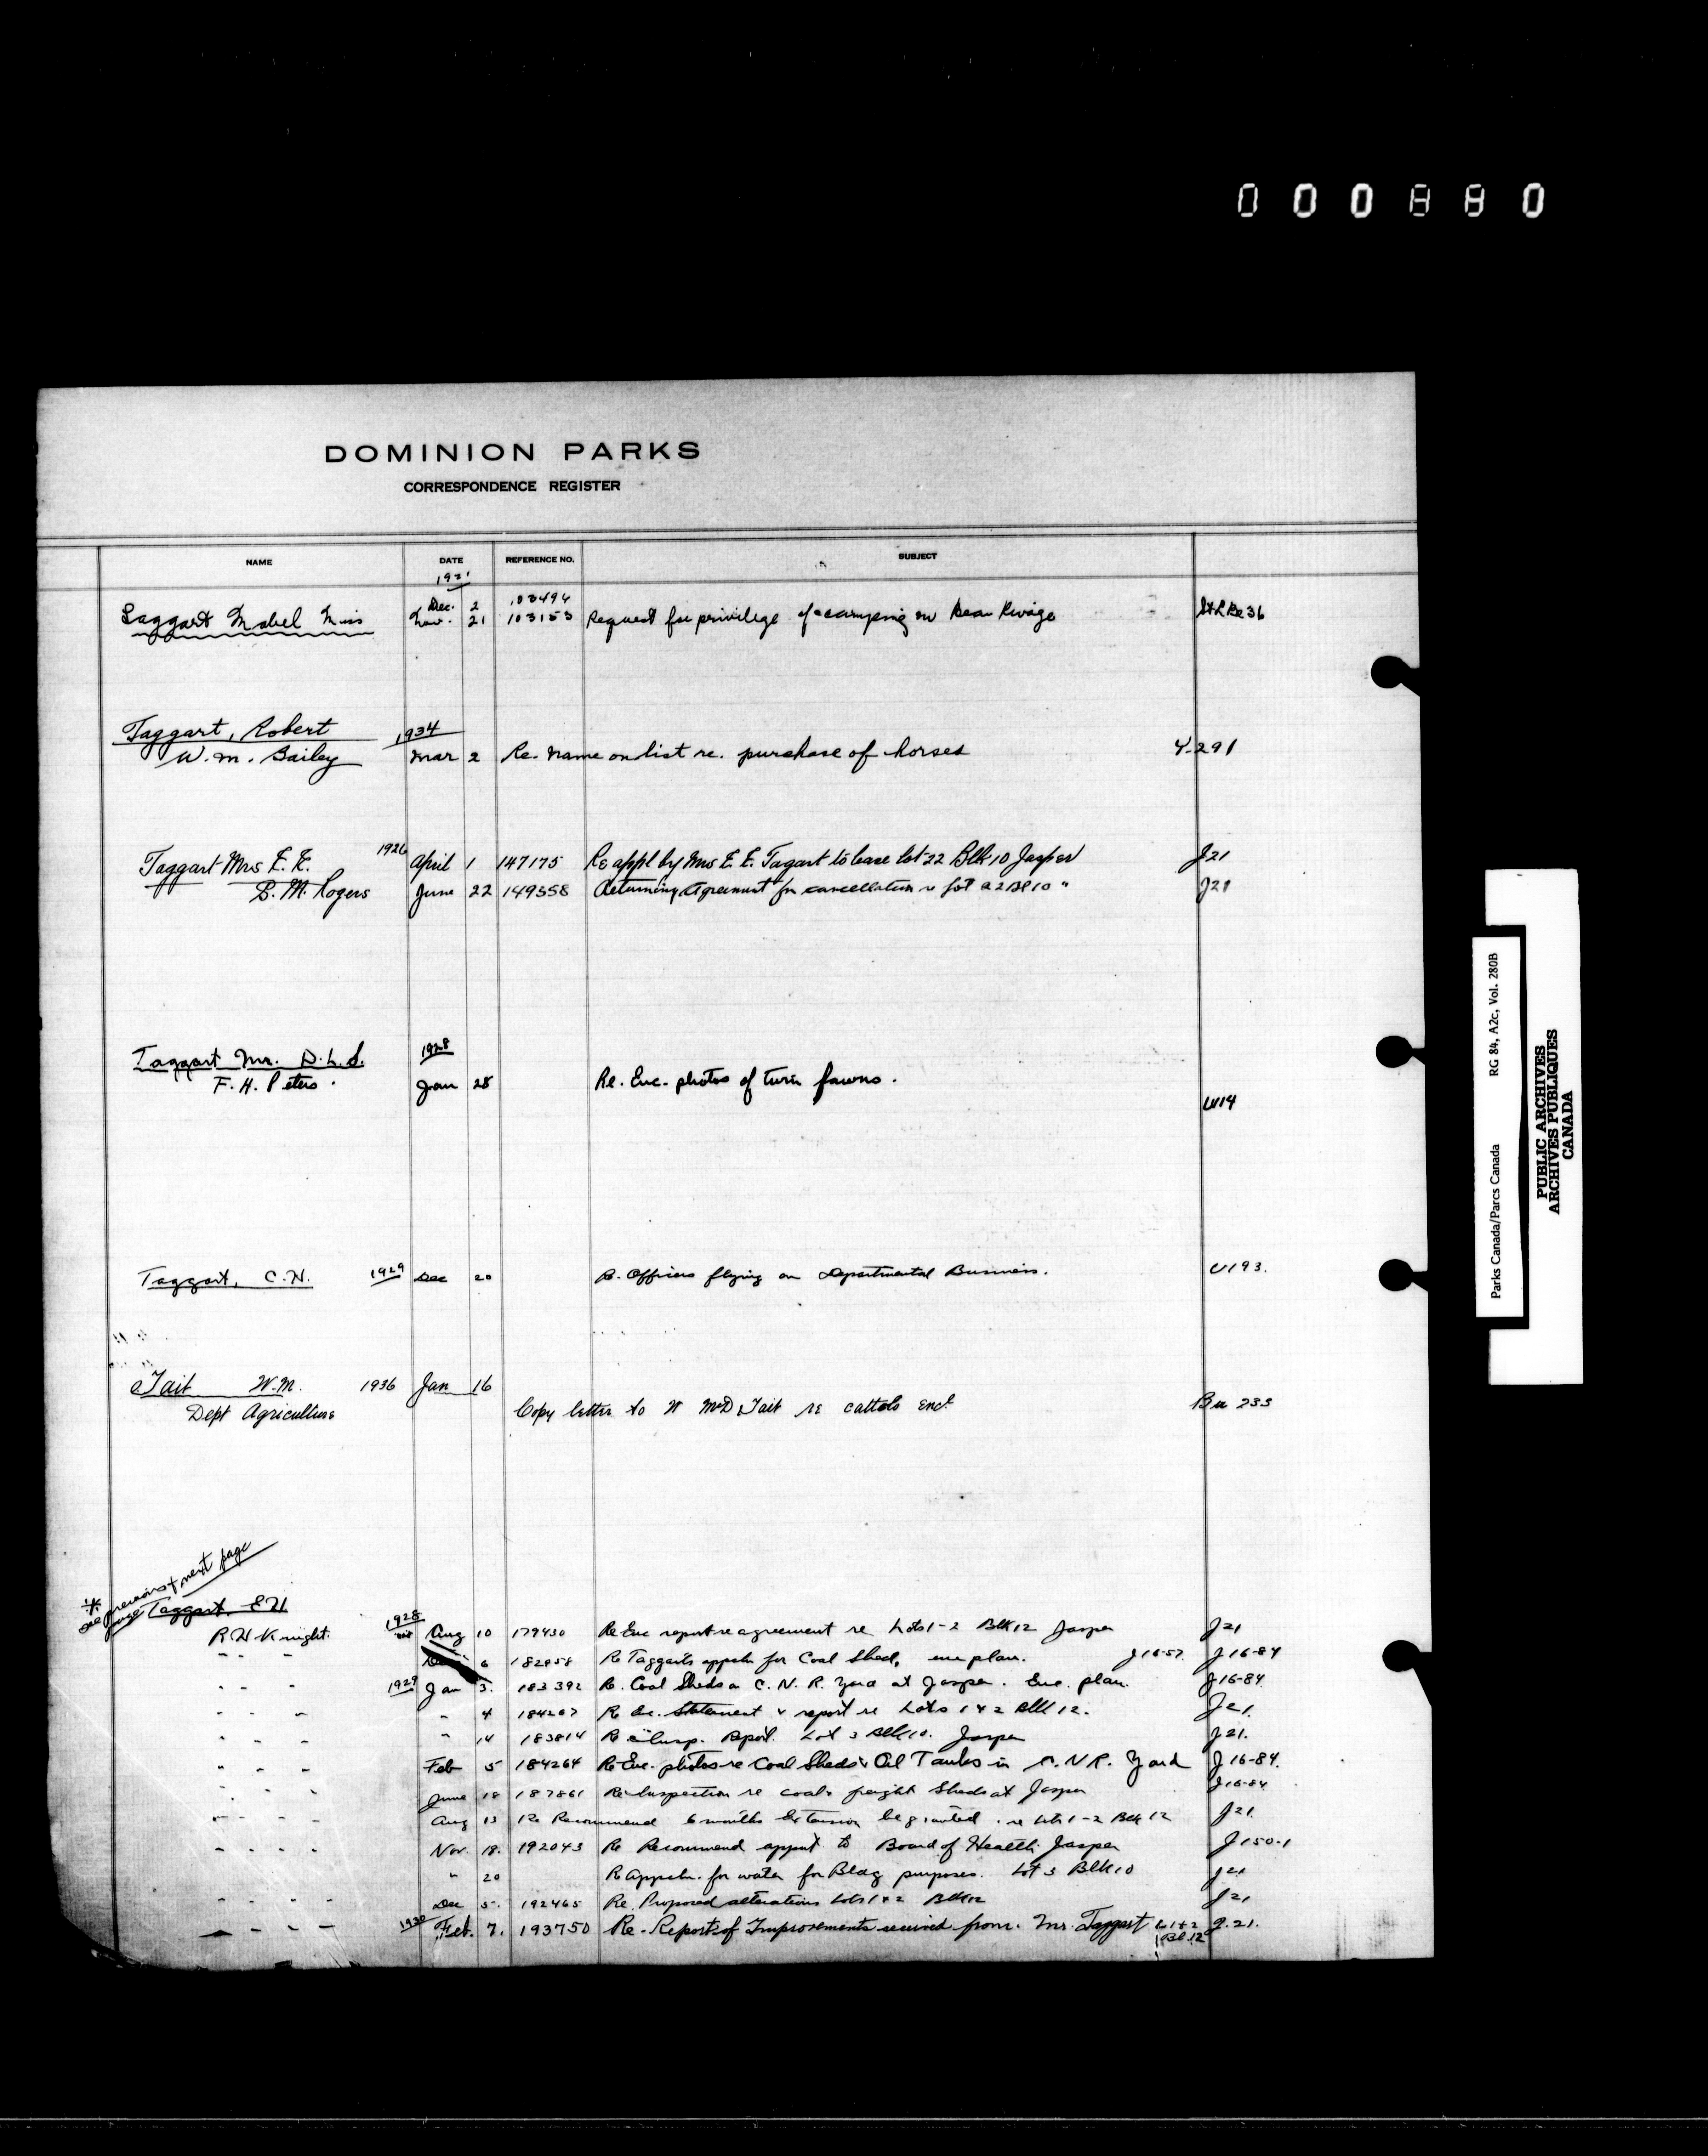 000880
DOMINION PARKS
CORRESPONDENCE REGISTER
NAME DATE REFERENCE NO. SUBJECT
1921
Dec. 2 103494
Taggart Mabel Miss Nov. 21 103153 Request for privilege of camping on Beau Rivage StLRe36
Taggart, Robert 1934
W. M. Bailey Mar 2 Re. Name on list re. purchase of horses Y.291
Taggart Mrs E. E. 1926 April 1 147175 Re appl by Mrs E. E. Tagart to lease lot 22 Blk 10 Jasper J21
S. M. Rogers June 22 149358 Returning Agreement for cancellation re Lot 22 Bl 10 " J21
Taggart Mr. D.L.S. 1928
F. H. Peters. Jan 28 Re. Enc. photos of twin fawns.
U14
Taggart, C.H. 1929 Dec 20 Re. Officers flying on Departmental Business. U193.
Tait W.M. 1936 Jan 16
Dept Agriculture Copy letter to W McD Tait re cattalo encl Bu 233
* see previous & next page
page Taggart, E H
R H Knight. 1928 Aug 10 179430 Re Enc report re agreement re Lots 1-2 Blk 12 Jasper J21
" " " 6 182858 Re Taggarts appctn for Coal Shed, enc plan. J16-57. J16-84
" " " 1929 Jan 3. 183392 Re. Coal Sheds on C. N. R. Yard at Jasper. Enc. plan. J16-84
" " " " 4 184207 Re Enc. Statement & report re Lots 1 & 2 Blk 12. J21.
" " " " 14 183814 Re Insp. Report. Lot 3 Blk 10. Jasper J21.
" " " Feb 5 184264 Re Enc. photos re Coal Sheds & Oil Tanks in C. N R. Yard J16-84.
" " " June 18 187861 Re Inspection re coal & freight Sheds at Jasper J16-84
" " " Aug 13 Re Recommend 6 months Extension be granted. re Lots 1-2 Blk 12 J21.
" " " " Nov. 18. 192043 Re Recommend appmt to Board of Health Jasper J150-1
" 20 Re Appctn. for water for Bldg purposes. Lot 3 Blk 10 J21
" " " " Dec 5. 192465 Re. Proposed alterations Lots 1 & 2 Blk 12 J21
" " " 1930 Feb. 7. 193750 Re. Reports of Improvements received from. Mr. Taggart L 1 & 2 J.21.
Bl. 12
Parks Canada/Parcs Canada RG 84, A2c, Vol. 280B
PUBLIC ARCHIVES
ARCHIVES PUBLIQUES
CANADA